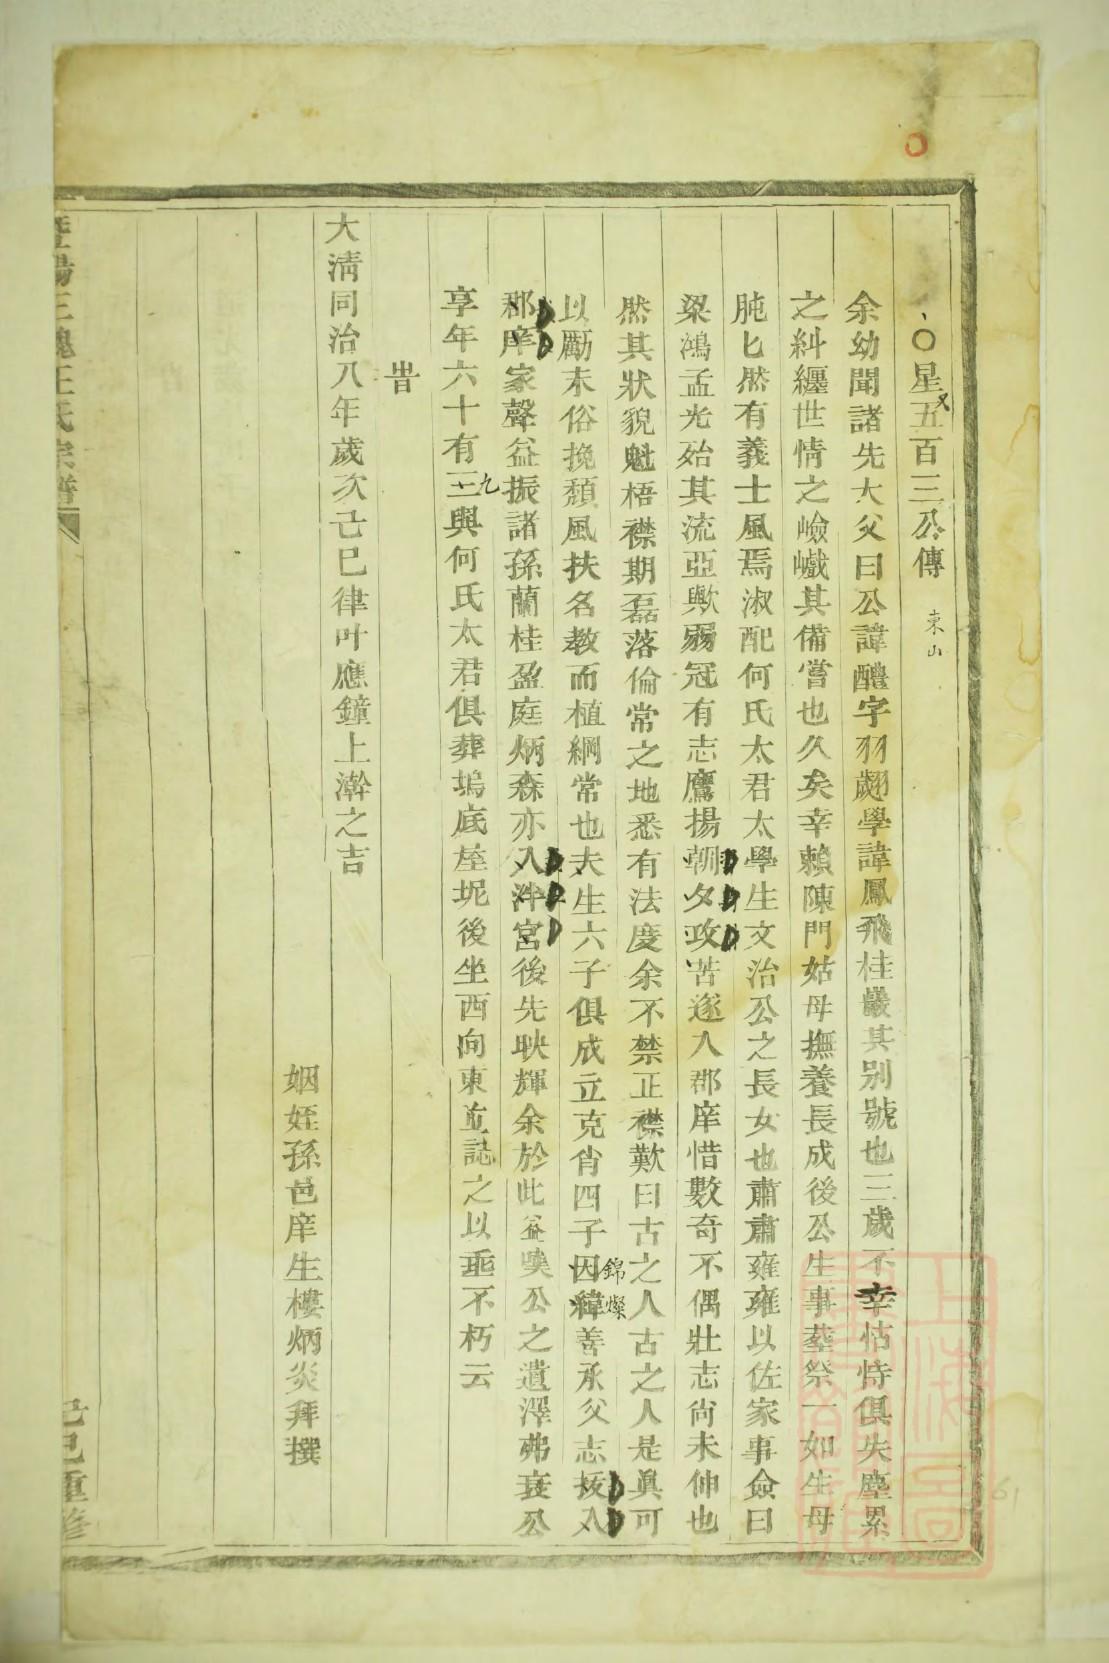 ○星五百三公傳
又
東山
余幼聞諸先大父曰公諱醴字羽翽學諱鳳飛桂巖其別號也三歲不幸怙恃俱失塵累
之糾纒世情之嶮巇其備嘗也久矣幸賴陳門姑母撫養長成後公生事葬祭一如生母
肫匕然有義士風焉淑配何氏太君太學生文治公之長女也肅肅雍雍以佐家事僉曰
梁鴻孟光殆其流亞歟弱冠有志鷹揚朝夕攻苦遂入郡庠惜數奇不偶壯志尙未伸也
然其狀貌魁梧襟期磊落倫常之地悉有法度余不禁正襟歎曰古之人古之人是眞可
以勵末俗挽頹風扶名教而植綱常也夫生六子俱成立克肖四子因緯善承父志掖入
錦燦
郡庠家聲益振諸孫蘭桂盈庭炳森亦入泮宮後先映輝余於此益嘆公之遺澤弗衰公
享年六十有三與何氏太君俱葬塢底垤坭後坐西向東並誌之以垂不朽云
九
旹
大淸同治八年歲次己巳律叶應鐘上澣之吉
姻姪孫邑庠生樓炳炎拜撰
王氏宗譜
己巳重修
上海圖書館藏
61